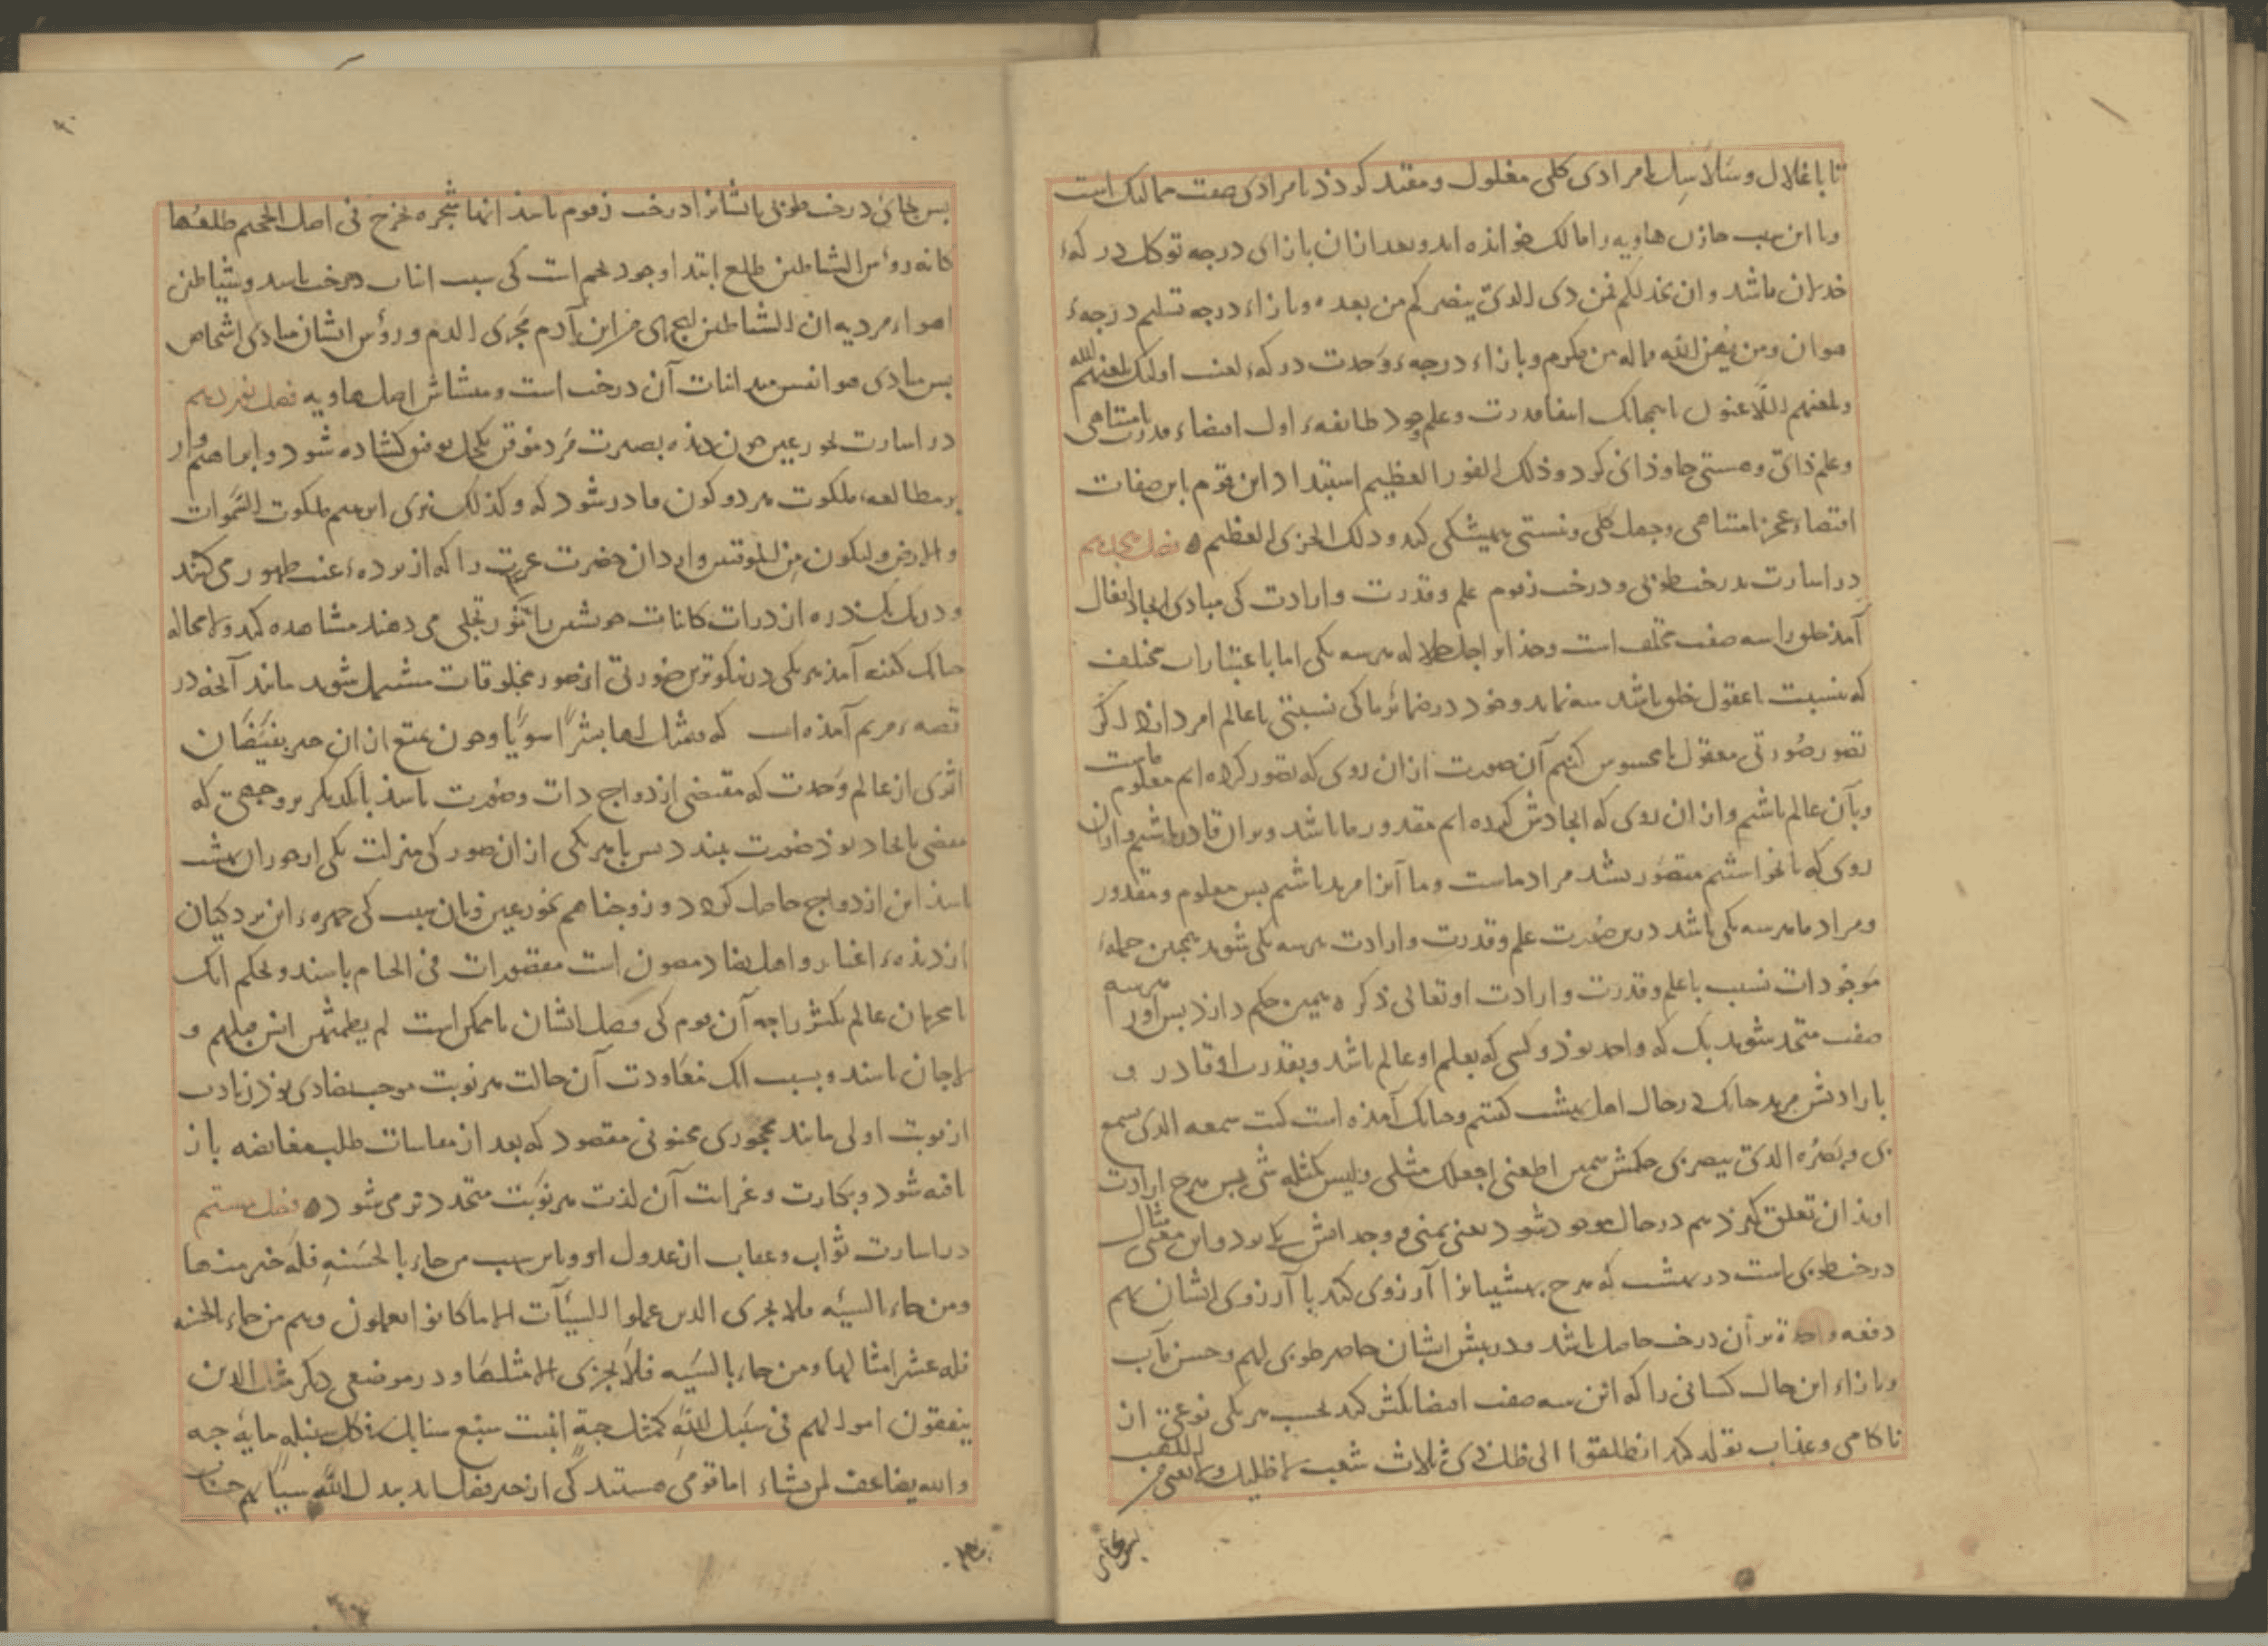 تا باغلال و سلاسل نامرادی کلی مغلول و مقید کردد نامرادی صفت ممالیک است
و بااین سبب خازن هاویه را مالک خوانده اند و بعد ازان بازای درجه توکل درکهٔ
خذلان باشد و ان یخذلکم فمن ذی الذی ینصرکم من بعده و بازاء درجه تسلیم درجهٔ
هوان و من یهن الله فماله من مکرم و بازاء درجهء وحدت درکهء لعنت اولئک یلعنهم الله
و یلعنهم اللاعنون همچنانک انتفا قدرت و علم و وجود طایفهء اول اقتضاء قدرت نامتناهی
و علم ذاتی و هستی جاوذانی کرد و ذلک الفوز العظیم استبداد این قوم باین صفات
اقتضاء عجز نامتناهی و جهل کلی و نیستی همیشکی کند و ذلک الخزی العظیم ه فصل هجدهم
در اشارت بدرخت طوبی و درخت زقوم علم و قدرت و ارادت کی مبادی ایجاد افعال
آمذ خلق را سه صفت مختلف است و خذاوند جل جلاله هر سه یکی اما باعتبارات مختلف
که نسبت با عقول خلق باشد سه نماید و خود در ضمائر ما کی نسبتی با عالم امر دارد اکر
تصور صورتی معقول یا محسوس کنیم آن صورت ازان روی که تصور کرده ایم معلوم ماست
و بآن عالم باشیم و ازان روی که ایجادش کرده ایم مقدور ما باشد و بران قادر باشیم و ازان
روی که تا نخواستیم متصور نشد مراد ماست و ما آنرا مرید باشیم بس معلوم و مقدور
و مراد ما هر سه یکی باشد درین صورت علم و قدرت و ارادت هر سه یکی شوند همچنین جملهء
موجودات نسبت با علم و قدرت و ارادت او تعالی ذکره همین حکم دارد بس اورا هر سه
صفت متحد شوند بل که واحد بوذ و کسی که بعلم او عالم باشد و بقدرت او قادر و
بارادتش مرید چنانک در حال اهل بهشت کفتیم و چنانک آمذه است کنت سمعه الذی یسمع
بی و بصره الذی یبصر بی حکمش همین اطعنی اجعلک مثلی و لیس کمثله شی بس هرج ارادت
او بذان تعلق کیرذ هم در حال موجود شود یعنی تمنی و وجدانش یکی بود و این معنی مثال
درخت طوبی است در بهشت که هرج بهشتیانرا آرزوی کند با آرزوی ایشان بهم
دفعه واحدة بر آن درخت حاصل باشد و در بیش ایشان حاضر طوبی لهم و حسن مآب
و بازاء این حال کسانی را که این سه صفت اقتضا تکثر کند بحسب هر یکی نوعی از
ناکامی و عذاب تولد کند انطلقوا الی ظل ذی ثلاث شعب لا ظلیل و لا یغنی من اللهب
بس بجای
بس بجای درخت طوبی ایشانرا درخت زقوم باشد انها شجره تخرج فی اصل الجحیم طلعها
کانه رؤس الشیاطین طلع ابتداء وجود تخم است کی سبب انبات درخت باشد و شیاطین
اهواء مردیه ان الشیاطین لیجری من ابن آدم مجری الدم و رؤس ایشان مبادی اشخاص
بس مبادی هوا نفس مبدء انبات آن درخت است و منشاش اصل هاویه فصل نوزدهم
در اشارت بحور عین چون دیده بصیرت مرد موقن بکحل توفیق کشاده شود و ابراهیم وار
بر مطالعهء ملکوت هر دو کون قادر شود که و کذلک نری ابرهیم ملکوت السموات
و الارض و لیکون من الموقنین واردان حضرت عزت را که از بردهء غیب ظهور می کنند
و در یک یک ذره از ذرات کاینات خویشتن را بنور تجلی می دهند مشاهده کند و لامحاله
چنانک کفته آمذ هر یکی در نیکوترین صورتی از صور مخلوقات متمثل شوند مانند آنچ در
قصهء مریم آمذه است که فتمثل لها بشراً سویاً و چون تمتع ازان جز بفیضان
اثری از عالم وحدت که مقتضی ازدواج ذات و صورت باشد با یکدیکر بر وجهی که
مفضی باتحاد بوذ صورت نبندد بس با هر یکی ازان صور کی بمنزلت یکی از حوران بهشت
باشد این ازدواج حاصل کردد و زوجناهم بحور عین و بآن سبب کی چهرهء این پردکیان
از دیدهء اغیار و اهل تضاد مصون است مقصورات فی الخیام باشند و بحکم آنک
نامحرمان عالم تکثر را چه آن قوم کی وصل ایشان ناممکن است لم یطمثهن انس قبلهم و
لا جان باشند و بسبب آنک معاودت آن حالت هر نوبت موجب التذاذی بوذ زیادت
از نوبت اولی مانند مهجوری محبوبی مقصود که بعد از مقاسات طلب مفاوضه باز
یافته شود و بکارت و غرابت آن لذت هر نوبت متجددتر می شوده فصل بیستم
در اشارت ثواب و عقاب از عدول او و باین سبب من جاء بالحسنه فله خیر منها
و من جاء بالسیئه فلا یجزی الذین عملوا السیآت الا ما کانوا یعملون و هم من جاء بالحسنه
فله عشر امثالها و من جاء بالسیئه فلا یجزی الا مثلها و در موضعی دیکر مثل الذین
ینفقون اموالهم فی سبیل الله کمثل حبة انبتت سبع سنابل فی کل سنبله مایه حبه
و الله یضاعف لمن یشاء اما قومی هستند کی از حیز فضل اند یبدل الله سیاتهم حسنات